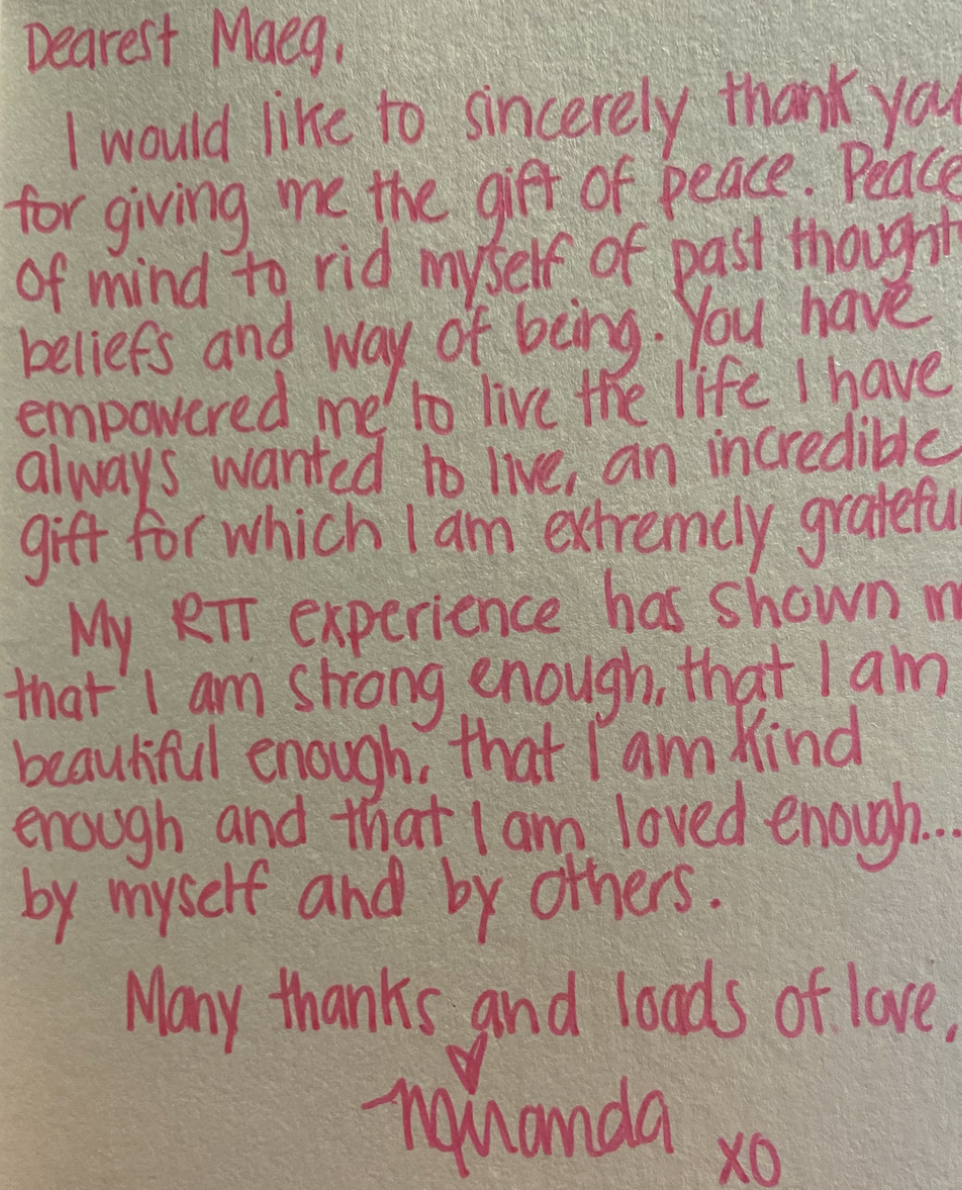 Dearest Maeg,
I would like to sincerely thank you
for giving me the gift of peace. Peace
of mind to rid myself of past thought
beliefs and way of being. You have
empowered me to live the life I have
always wanted to live, an incredible
gift for which I am extremely grateful
My RTT experience has shown m
that I am strong enough, that I am
beautiful enough, that I am kind
enough and that I am loved enough...
by myself and by others.
Many thanks and loads of love,
Miranda
XO